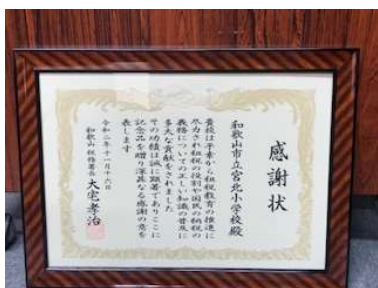 感謝状
和歌山市立宮北小学校殿
貴校は平素から租税教育の推進に
尽力され租税の役割や国民の納税の
義務についての正しい知識の普及に
多大な貢献をされました
その功績は誠に顕著でありここに
記念品を贈り深甚なる感謝の意を
表します
令和二年十一月十六日
和歌山税務署長 大宅孝治